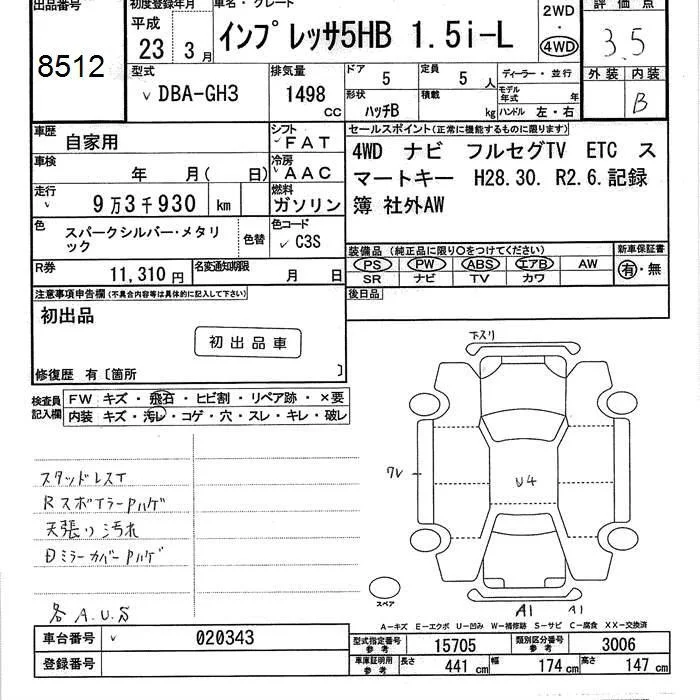 出品番号
8512
初度登録年月
平成
23 3月
車名・グレード
インプレッサ5HB 1.5i-L
2WD
・
4WD
評価点
3.5
型式
DBA-GH3
排気量
1498
CC
ドア
5
定員
5 人
形状
ハッチB
積載
kg
ディーラー・並行
モデル年式
年
ハンドル 左・右
外装 内装
B
車歴
自家用
シフト
FAT
車検
年 月 ( 日)
冷房
AAC
走行
9万3千930 km
燃料
ガソリン
色
スパークシルバー・メタリック
色替
色コード
C3S
R券
11,310円
名変通知期限
月 日
セールスポイント(正常に機能するものに限ります)
4WD ナビ フルセグTV ETC ス
マートキー H28.30. R2.6.記録
簿 社外AW
装備品 (純正品に限り○をつけてください)
PS PW ABS エアB AW
SR ナビ TV カワ
新車保証書
有・無
後日品
注意事項申告欄(不具合内容等は具体的に記入して下さい)
初出品
初出品車
修復歴 有〔箇所 〕
検査員
記入欄
FW キズ・飛石・ヒビ割・リペア跡・×要
内装 キズ・汚レ・コゲ・穴・スレ・キレ・破レ
スタッドレスT
Rスポイラー Pハゲ
天張り汚れ
Dミラーカバー Pハゲ
各 A.U.S
下スリ
ワレ
U4
スペア
A1
A1
A-キズ E-エクボ U-凹み W-補修跡 S-サビ C-腐食 XX-交換済
車台番号
020343
登録番号
型式指定番号
参考
15705
類別区分番号
参考
3006
車庫証明用
参考
長さ
441 cm
幅
174 cm
高さ
147 cm